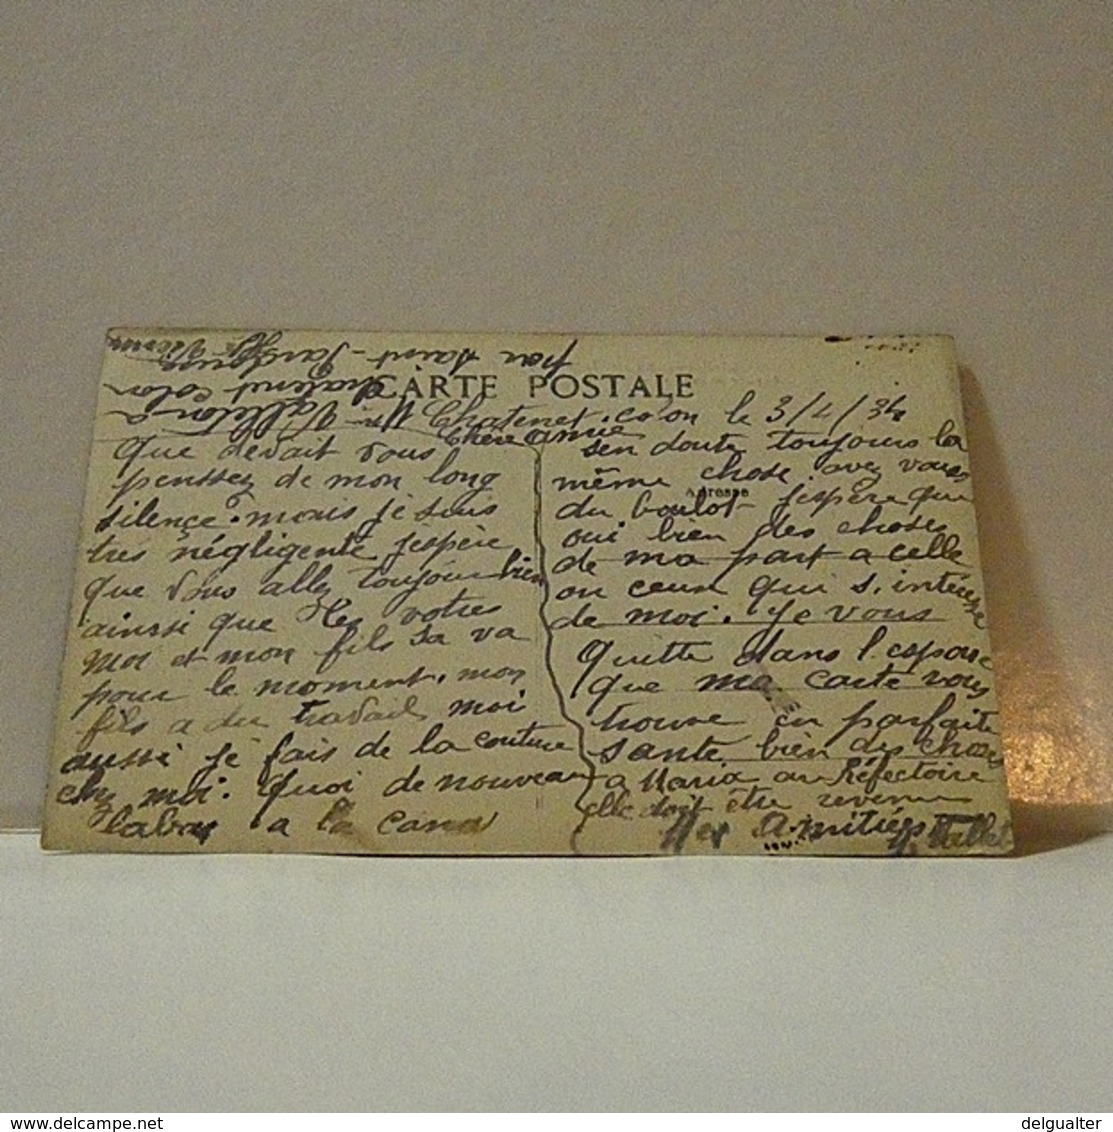 CARTE POSTALE
Chatenet colon le 3/4/34
Chère amie
que devait vous
penssez de mon long
silençe. mais je suis
tres négligente j'espère
que vous allez toujour bien
ainsi que les votres
moi et mon fils sa va
pour le moment. mon
fils a du travail moi
aussi je fais de la couture
chez moi. Quoi de nouveau
labas a la
sen doute toujours la
même chose avez vous
Adresse
du boulot j'espère que
oui bien des choses
de ma part a celle
ou ceux qui s, intéresse
de moi. je vous
quitte dans l'espoire
que ma carte vous
trouve en parfaite
sante bien des choses
a Maria au Réfectoire
elle doit être revenue
Mes Amitiés
par Saint-
Chatenet colon
delcampe.net
delgualter